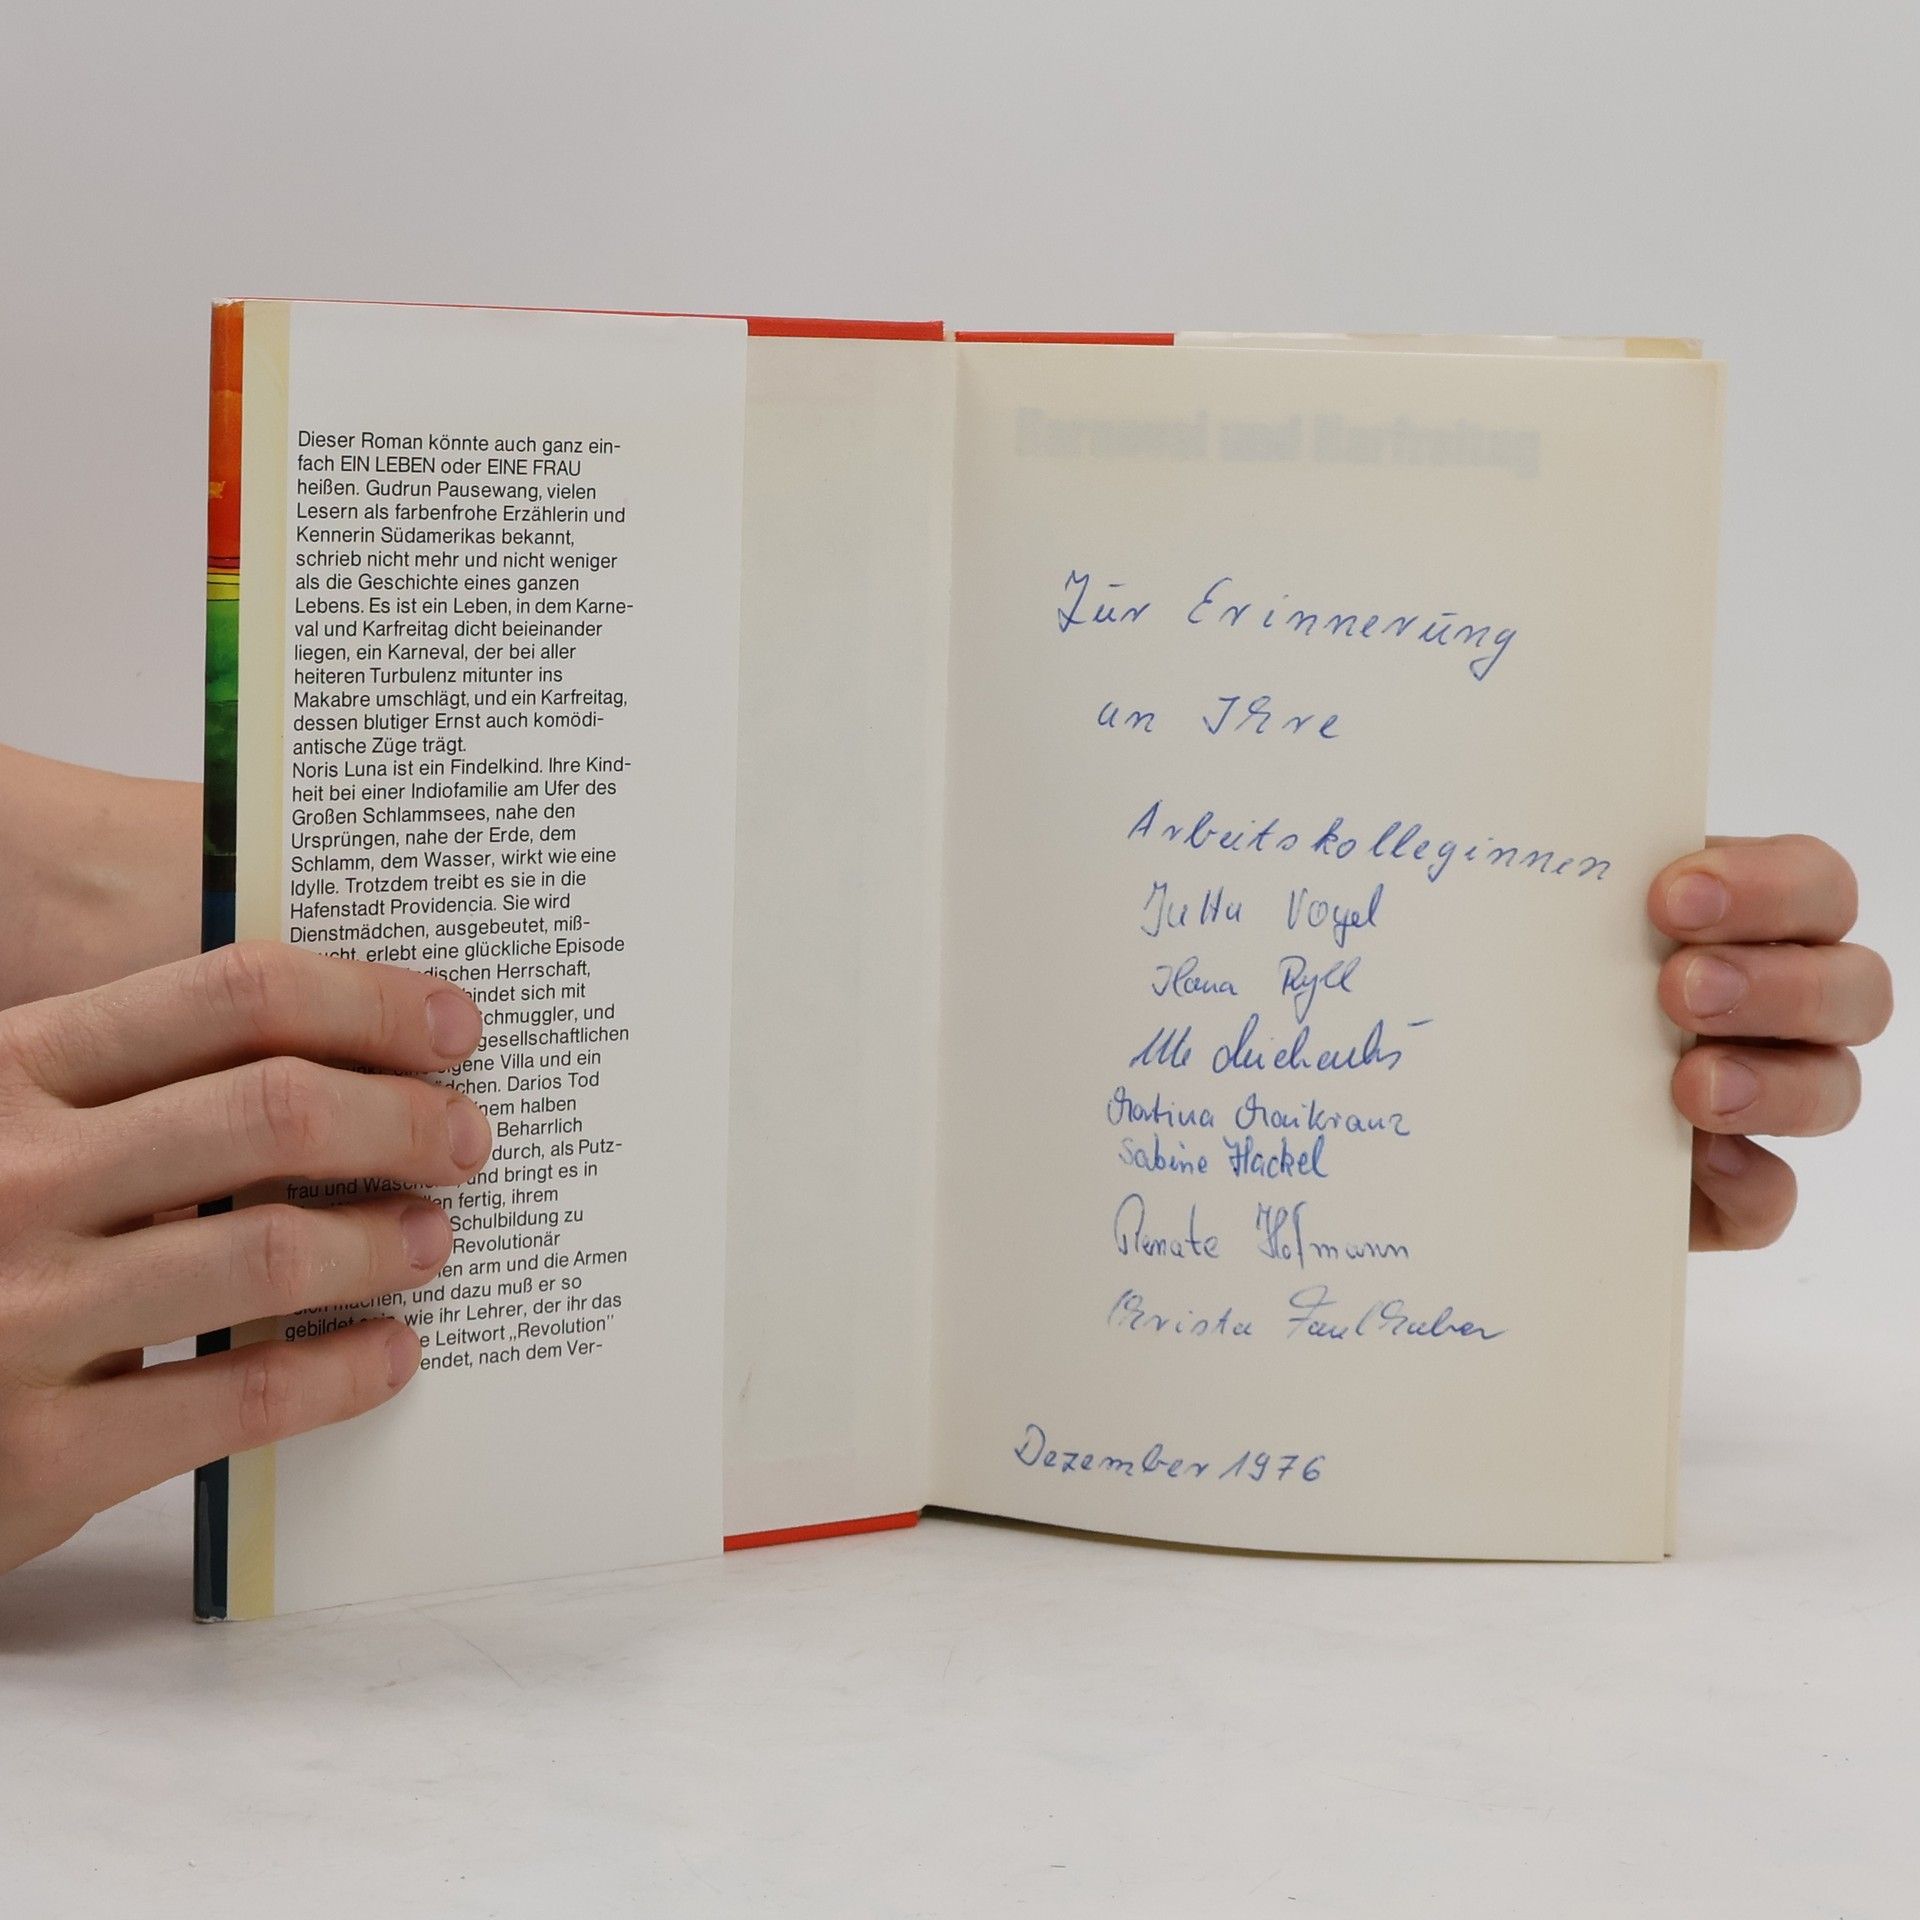 Dieser Roman könnte auch ganz ein-
fach EIN LEBEN oder EINE FRAU
heißen. Gudrun Pausewang, vielen
Lesern als farbenfrohe Erzählerin und
Kennerin Südamerikas bekannt,
schrieb nicht mehr und nicht weniger
als die Geschichte eines ganzen
Lebens. Es ist ein Leben, in dem Karne-
val und Karfreitag dicht beieinander
liegen, ein Karneval, der bei aller
heiteren Turbulenz mitunter ins
Makabre umschlägt, und ein Karfreitag,
dessen blutiger Ernst auch komödi-
antische Züge trägt.
Noris Luna ist ein Findelkind. Ihre Kind-
heit bei einer Indiofamilie am Ufer des
Großen Schlammsees, nahe den
Ursprüngen, nahe der Erde, dem
Schlamm, dem Wasser, wirkt wie eine
Idylle. Trotzdem treibt es sie in die
Hafenstadt Providencia. Sie wird
Dienstmädchen, ausgebeutet, miß-
erlebt eine glückliche Episode
Herrschaft,
sich mit
und
gesellschaftlichen
Villa und ein
Darios Tod
halben
Beharrlich
durch, als Putz-
frau und und bringt es in
fertig, ihrem
Schulbildung zu
Revolutionär
arm und die Armen
und dazu muß er so
gebildet wie ihr Lehrer, der ihr das
Leitwort „Revolution"
nach dem Ver-
Karneval und Karfreitag
Zur Erinnerung
an Ihre
Arbeitskolleginnen
Jutta Vogel
Ilona Ryll
Ute
Martina
Sabine Hackel
Renate Hofmann
Christa Faulhaber
Dezember 1976